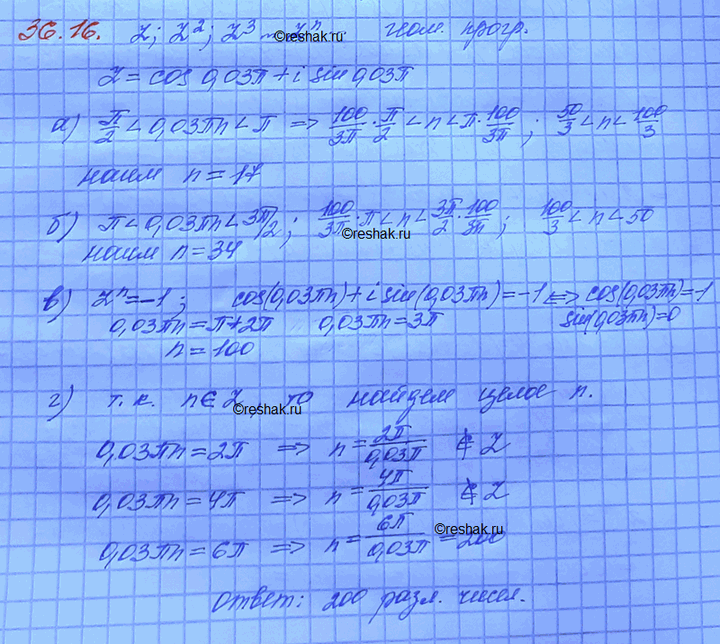 36.16. z; z²; z³ ... zⁿ... геом. прогр.
z = cos 0,03π + i sin 0,03π
а) π/2 < 0,03πn < π ⇒ 100/3π · π/2 < n < π · 100/3π ; 50/3 < n < 100/3
наим n = 17
б) π < 0,03πn < 3π/2 ; 100/3π · π < n < 3π/2 · 100/3π ; 100/3 < n < 50
наим n = 34
в) zⁿ = -1 ; cos(0,03πn) + i sin(0,03πn) = -1 ⇔ cos(0,03πn) = -1
sin(0,03πn) = 0
0,03πn = π + 2π 0,03πn = 3π
n = 100
г) т.к. n ∈ Z, то найдем целое n.
0,03πn = 2π ⇒ n = 2π/0,03π ∉ Z
0,03πn = 4π ⇒ n = 4π/0,03π ∉ Z
0,03πn = 6π ⇒ n = 6π/0,03π = 200
Ответ: 200 разл. чисел.
©reshak.ru
©reshak.ru
©reshak.ru
©reshak.ru